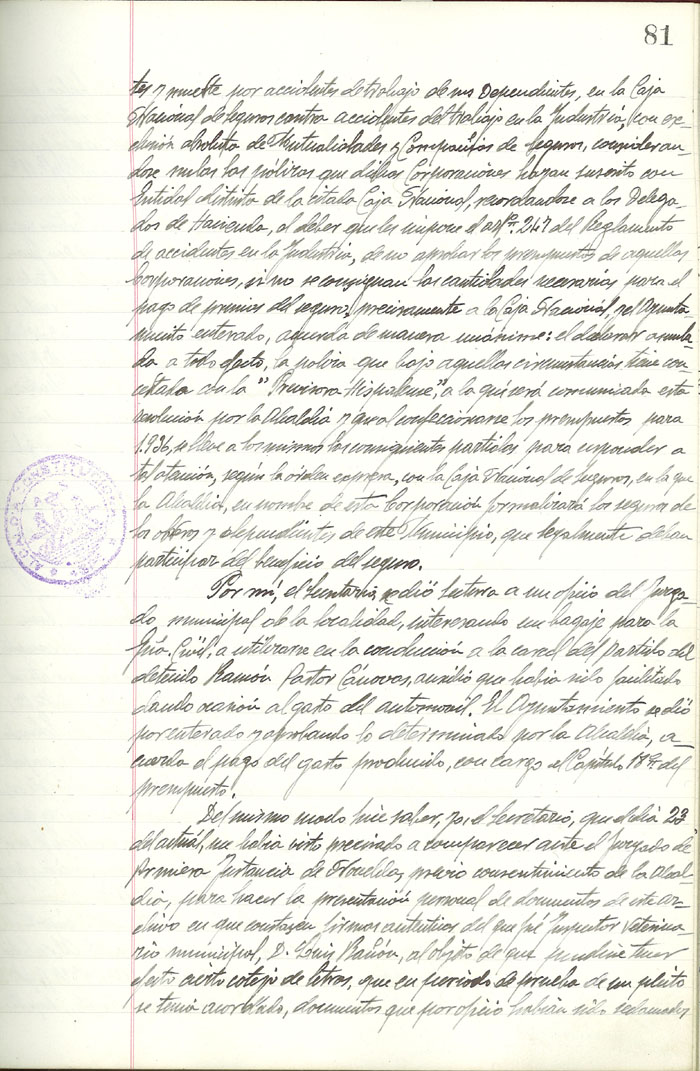 81
tes y muerte por accidentes de trabajo de sus Dependientes, en la Caja
Nacional de seguros contra accidentes del trabajo en la Industria, con ex-
clusión absoluta de Mutualidades y Compañías de seguros, considerán-
dose nulas las pólizas que dichas Corporaciones hayan suscrito con
Entidad distinta de la citada Caja Nacional, recordándose a los Delega-
dos de Hacienda, el deber que les impone el artº. 247 del Reglamento
de accidentes en la Industria, de no aprobar los presupuestos de aquellas
Corporaciones, si no se consignan las cantidades necesarias para el
pago de premios del seguro, precisamente a la Caja Nacional, y el Ayunta-
miento enterado, acuerda de manera unánime: el declarar anula-
da a todo efecto, la póliza que bajo aquellas circunstancias tiene con-
certada con la "Previsora Hispalense", a la que será comunicada esta
resolución por la Alcaldía y que al confeccionarse los presupuestos para
1.936, se lleve a los mismos las consiguientes partidas para responder a
tal atención, según la órden expresa, con la Caja Nacional de seguros, en la que
la Alcaldía, en nombre de esta Corporación formalizará los seguros de
los obreros y dependientes de este Municipio, que legalmente deban
participar del beneficio del seguro.
Por mí, el Secretario, se dió lectura a un oficio del Juzga-
do municipal de la localidad, interesando un bagaje para la
Gria. Civil, a utilizarse en la conducción a la carcel del partido del
detenido Ramón Pastor Cánovas, auxilio que había sido facilitado
dando ocasión al gasto del automovil. El Ayuntamiento se dió
por enterado y aprobando lo determinado por la Alcaldía, a-
cuerda el pago del gasto producido, con cargo al Capítulo 18º. del
presupuesto.
Del mismo modo hice saber, yo, el Secretario, que el día 23
del actual, me había visto precisado a comparecer ante el Juzgado de
Primera Instancia de Novelda, previo consentimiento de la Alcal-
día, para hacer la presentación personal de documentos de este ar-
chivo en que constasen firmas autenticas del que fué Inspector Veterina-
rio municipal, D. Luis Bañón, al objeto de que pudiese tener
efecto cierto cotejo de letras, que en periodo de prueba de un pleito
se tenía acordado, documentos que por oficio habían sido reclamados